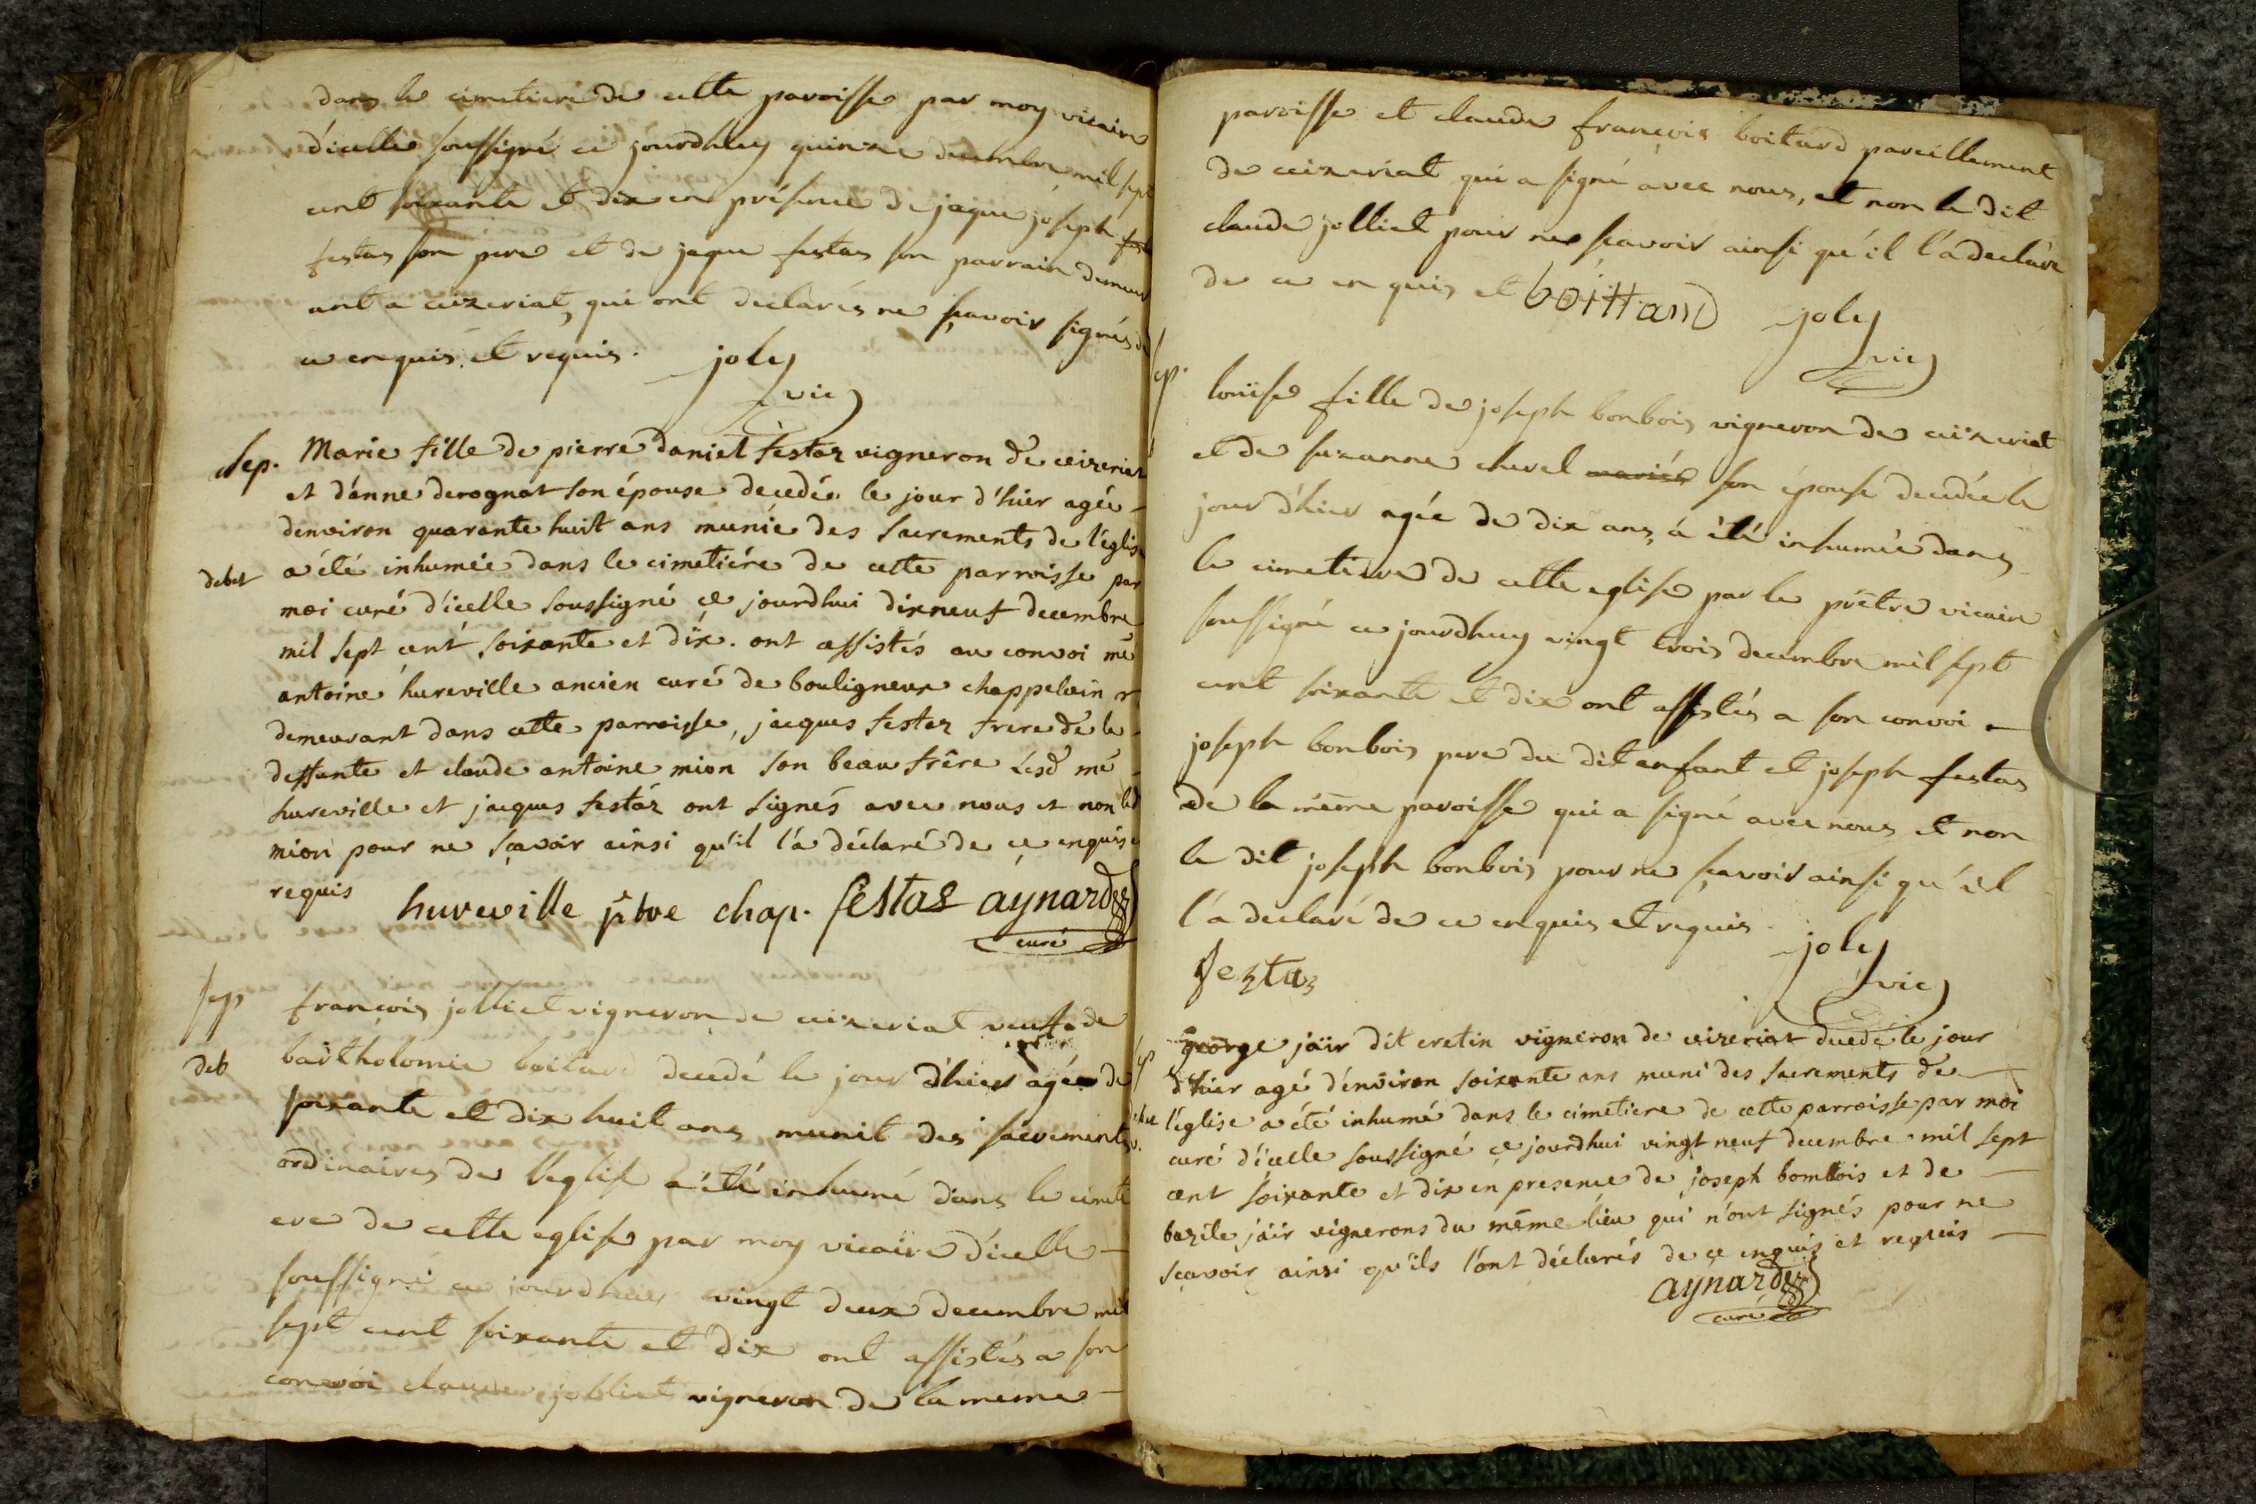 dans le cimetiere de cette paroisse par moy vicaire
d'icelle soussigné ce jourdhuy quinze decembre mil sept
cent soixante et dix en présence de jaque joseph
festas son pere et de jaque festas son parrain demeur
ant a ceizeriat, qui ont declarés ne sçavoir signés de
ce enquis et requis. joly
vic
Sep. Marie fille de pierre daniel festaz vigneron de ceizeriat
et d'anne derognat son épouse decedée le jour d'hier agée
denviron quarante huit ans munie des sacrements de l'églis
debet a été inhumée dans le cimetiére de cette parroisse par
moi curé d'icelle soussigné ce jourdhui dixneuf decembre
mil sept cent soixante et dix. ont assistés au convoi me
antoine hureville ancien curé de bouligneux chappelain
demeurant dans cette parroisse, jacques festaz frere de la
deffunte et claude antoine mion son beau frêre Lesd me
hureville et jacques festáz ont signés avec nous et non led
mion pour ne sçavoir ainsi qu'il l'a déclaré de ce enquis
requis hureville ptre chap. festas aynard
curé
sep françois jolliet vigneron de ceizeriat veuf de
deb bartholomie boitard decedé le jour d'hier agé de
soixante et dix huit ans munit des sacrements
ordinaires de l'eglise a été inhumé dans le cimeti
ere de cette eglise par moy vicaire d'icelle
soussigné ce jourdhuy vingt deux decembre mil
sept cent soixante et dix ont assistés a son
convoi claude jolliet vigneron de la meme
paroisse et claude françois boitard pareillement
de ceizeriat qui a signé avec nous, et non le dit
claude jolliet pour ne sçavoir ainsi qu'il l'a declaré
de ce enquis et boittard joly
vic
sep. louise fille de joseph bonbois vigneron de ceizeriat
et de suzanne chevel mariés son épouse decedée le
jour d'hier agée de dix ans, á été inhumée dans
le cimetiere de cette eglise par le prêtre vicaire
soussigné ce jourdhuy vingt trois decembre mil sept
cent soixante et dix ont assistés a son convoi
joseph bonbois pere du dit enfant et joseph festas
de la même paroisse qui a signé avec nous et non
le dit joseph bonbois pour ne sçavoir ainsi qu'il
l'a declaré de ce enquis et requis. joly
festas vic
george jaïr dit cretin vigneron de ceizeriat decedé le jour
d'hier agé d'environ soixante ans muni des sacrements de
l'église a été inhumé dans le cimetiere de cette parroisse par moi
curé d'icelle soussigné ce jourdhui vingt neuf decembre mil sept
cent soixante et dix en presence de joseph bombois et de
bazile jaïr vignerons du même lieu qui n'ont signés pour ne
sçavoir ainsi qu'ils l'ont déclarés de ce enquis et requis
aynard
curé